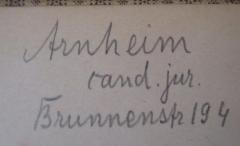 Arnheim
cand. jur.
Brunnenstr 194